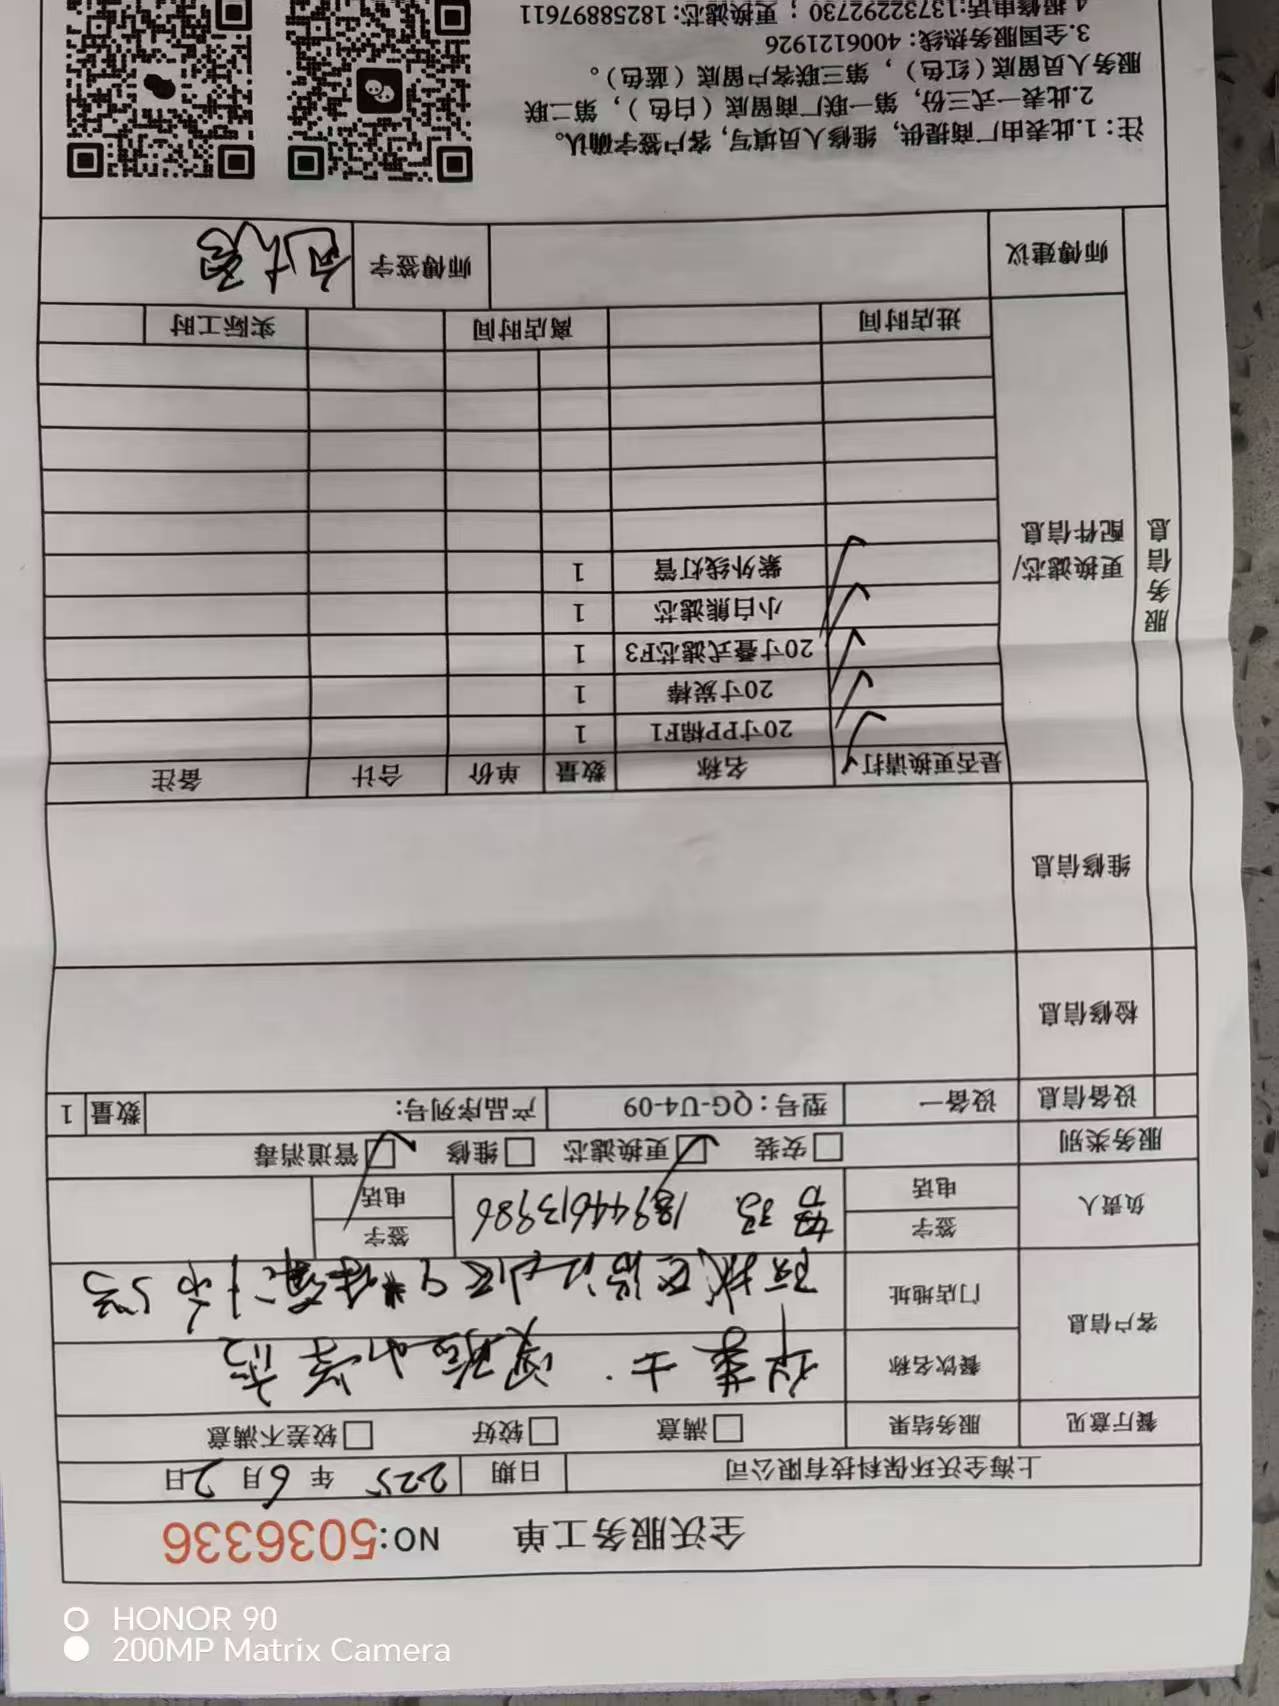 全沃服务工单 NO:5036336
上海全沃环保科技有限公司 日期 2025年6月2日
餐厅意见 服务结果 □满意 □较好 □较差不满意
客户信息 餐饮名称 士 实验小学店
门店地址
负责人 签字 电话 18944613986 签字 电话
服务类别 □安装 □更换滤芯 ✓ □维修 □管道消毒 ✓
设备信息 设备一 型号：QG-U4-09 产品序列号： 数量 1
检修信息
维修信息
服务信息
更换滤芯/配件信息
是否更换请打✓ 名称 数量 单价 合计 备注
✓ 20寸PP棉F1 1
✓ 20寸炭棒 1
✓ 20寸叠式滤芯F3 1
✓ 小白熊滤芯 1
✓ 紫外线灯管 1
进店时间 离店时间 实际工时
师傅建议 师傅签字
注：1.此表由厂商提供，维修人员填写，客户签字确认。
2.此表一式三份，第一联厂商留底（白色），第二联
服务人员留底（红色），第三联客户留底（蓝色）。
3.全国服务热线：4006121926
4.报修电话:13732292730；更换滤芯:18258897611
HONOR 90
200MP Matrix Camera